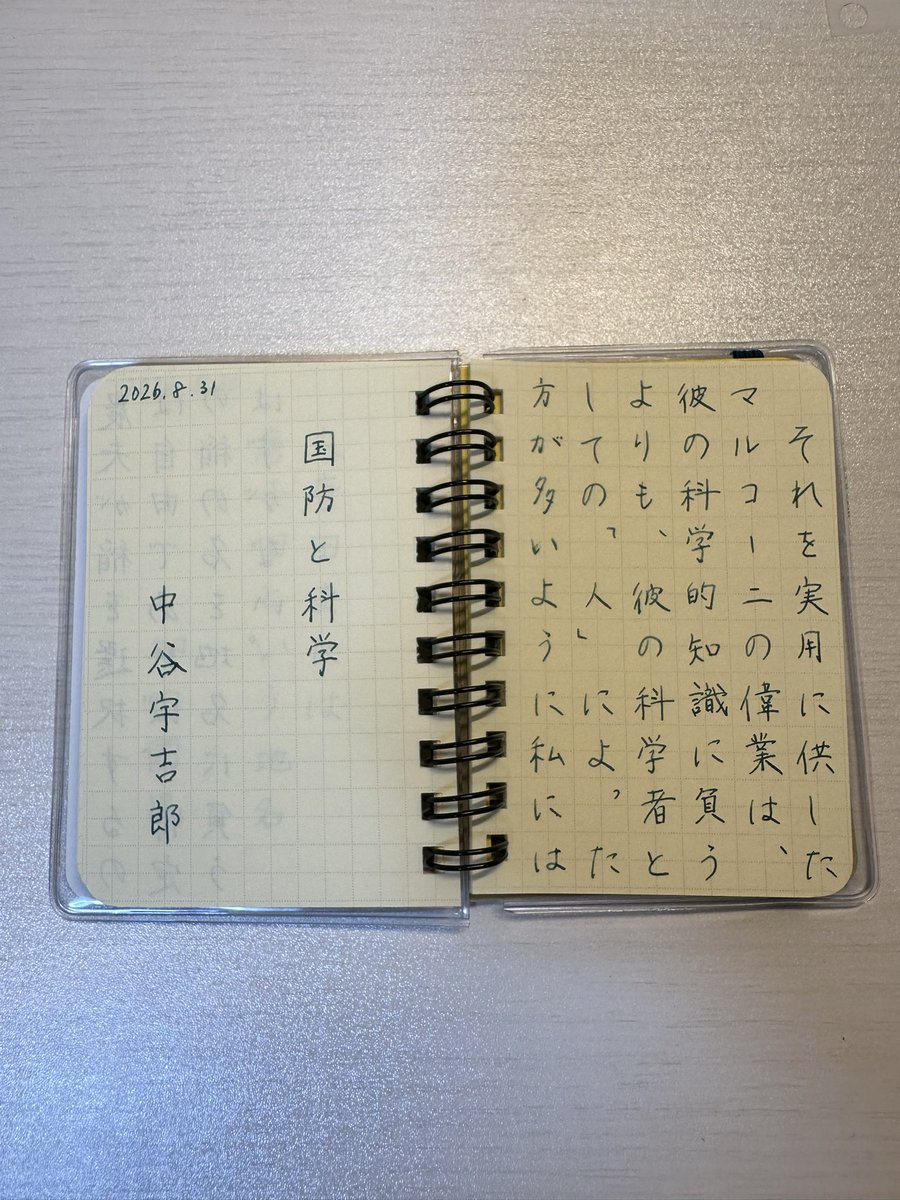 それを実用に供した
マルコーニの偉業は、
彼の科学的知識に負う
よりも、彼の科学者と
しての「人」によった
方が多いように私には
国防と科学
中谷宇吉郎
2026.8.31